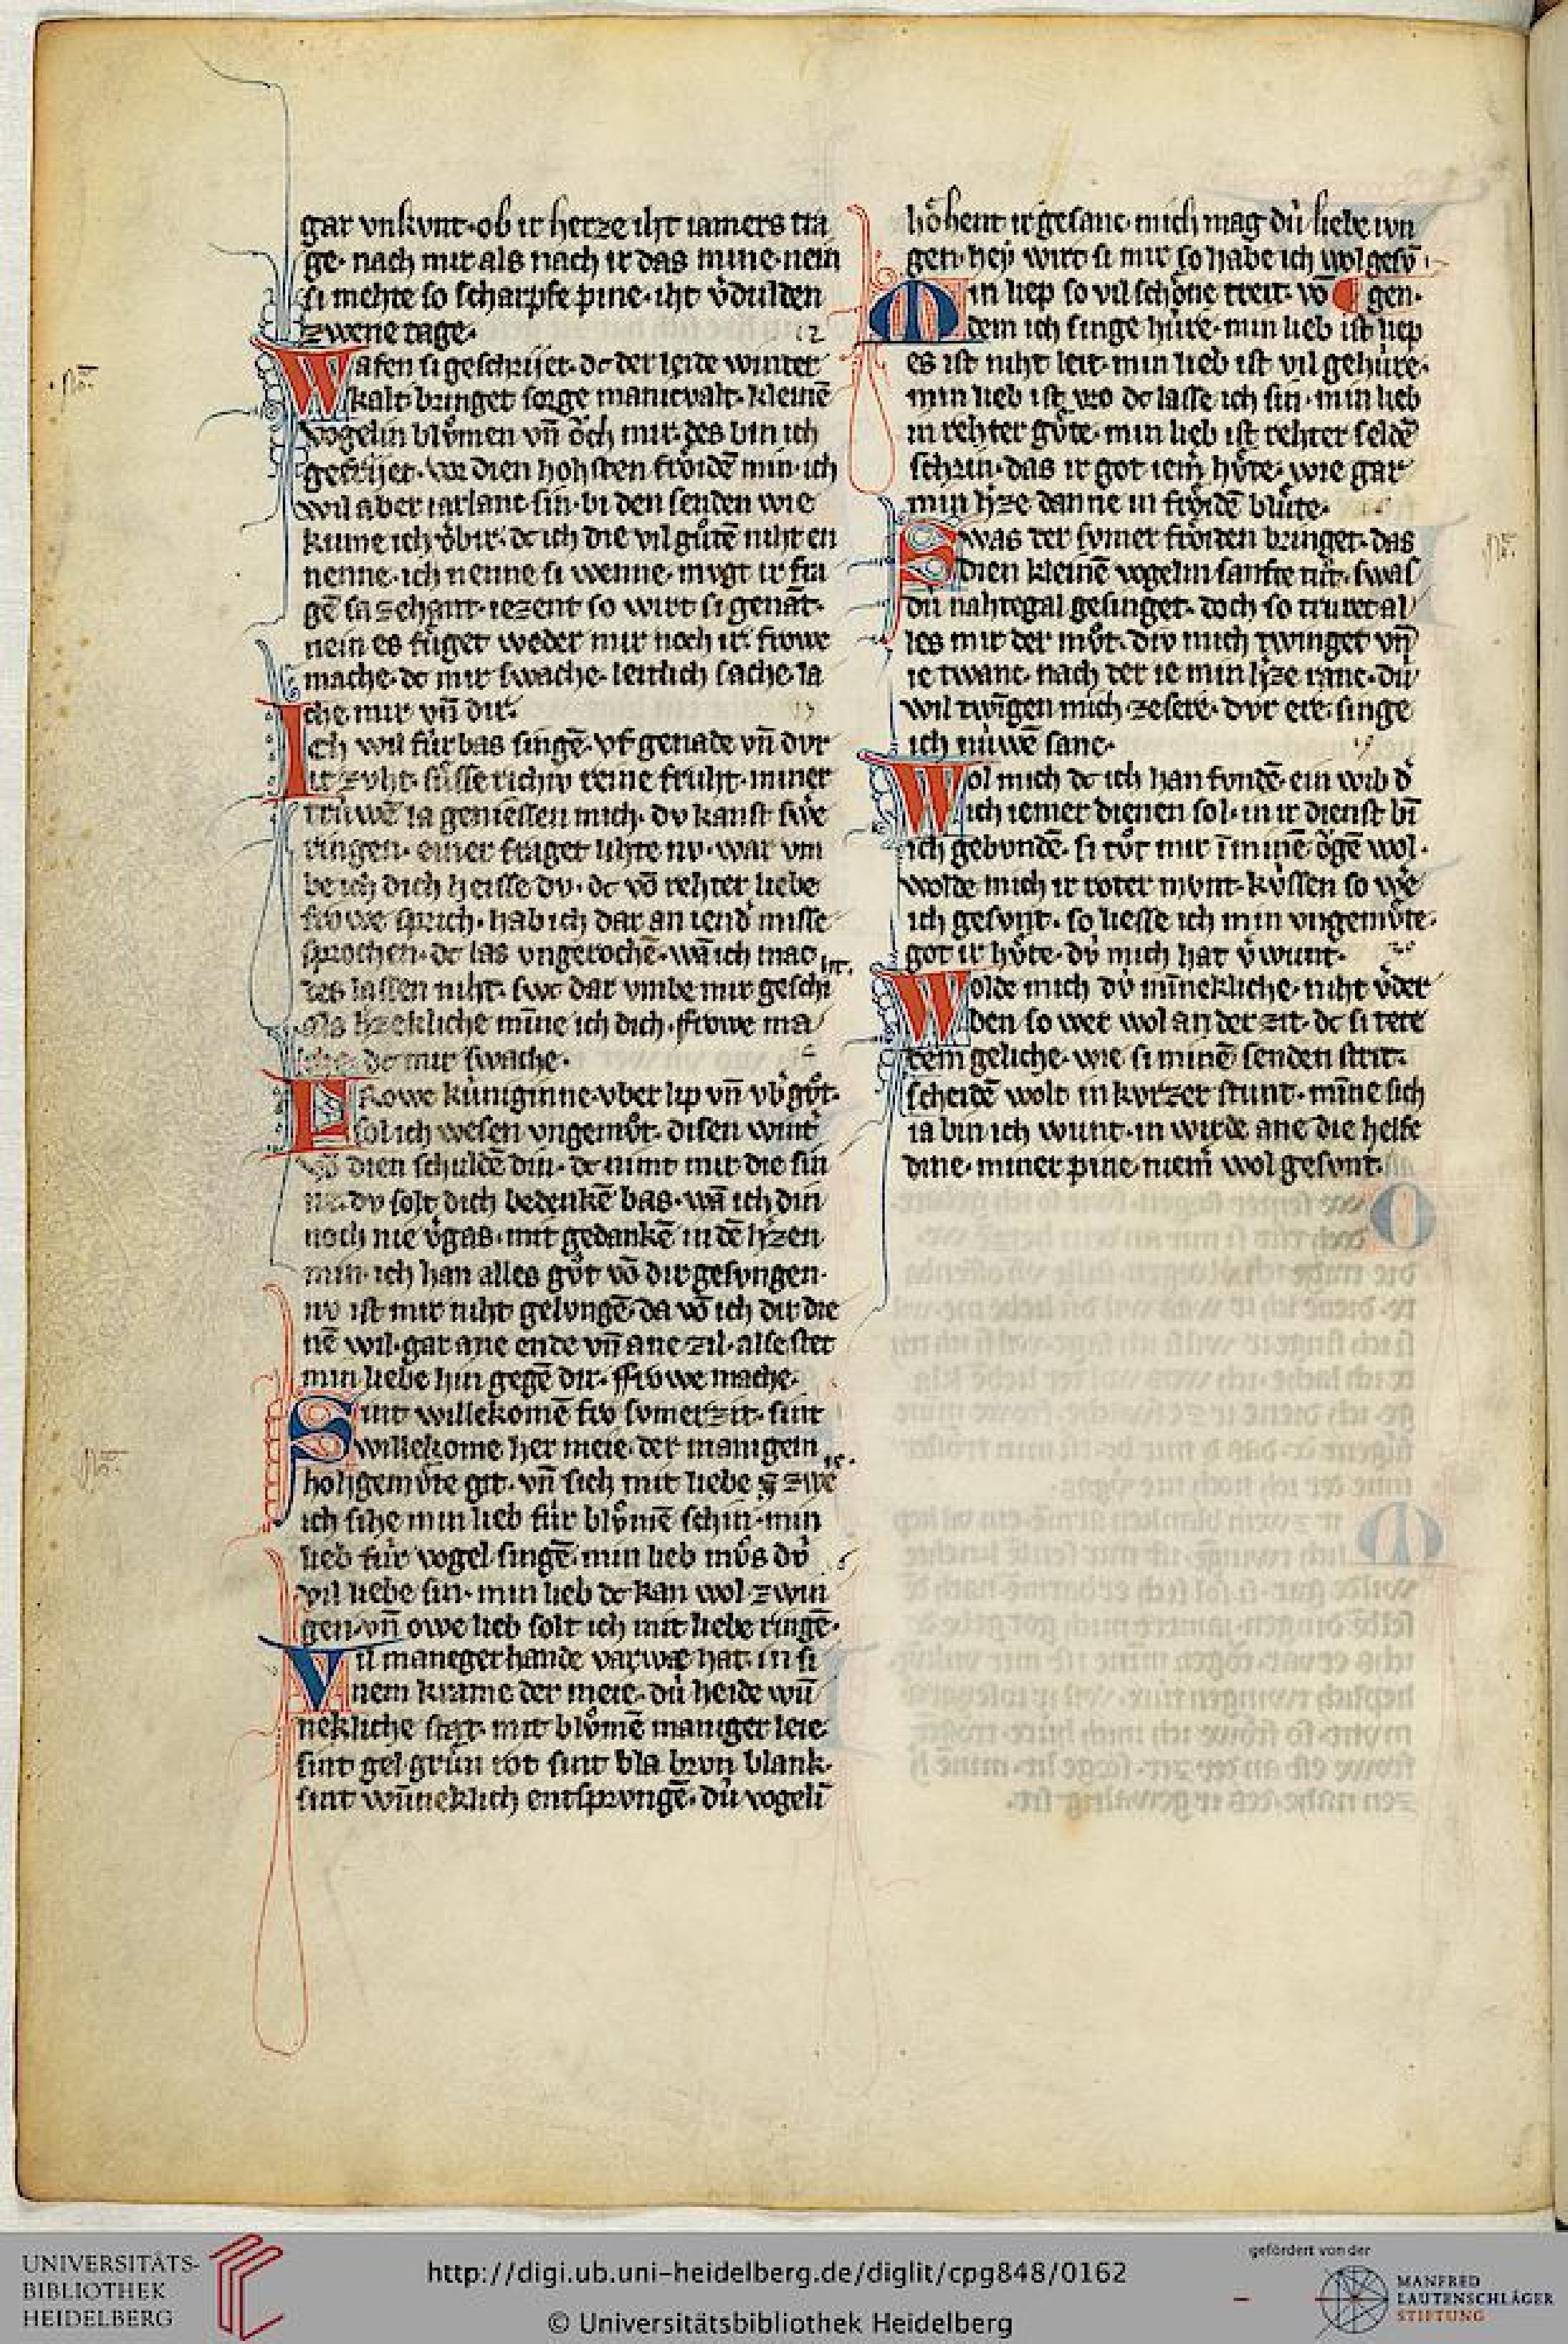 gar vnkvnt·ob ir herze iht iamers tra
ge· nach mir als nach ir das mine·nein
si mehte so scharpfe pine·iht v̾dulden
zwene tage·
Wafen si geschrijet·dc der leide winter
kalt bringet sorge manicvalt·kleinē
vogelin blůmen vn̄ ǒch mir·des bin ich
gefrijet·vor dien hohsten frǒidē min·ich
wil aber iarlanc sin·bi den senden wie
kume ich v̾bir·dc ich die vil gůtē niht en
nenne·ich nenne si wenne·mvgt ir fra
gē sa zehant·iezent so wirt si genāt·
nein es fůget weder mir noch ir·frowe
mache·dc mir swache·leitlich sache·la
che mir vn̄ dir·
Ich wil fúrbas singē·vf genade vn̄ dvr
ir zvht·sússe richv reine fruht·miner
trúwē la geniessen mich·dv kanst swe
ringen·einer fraget lihte nv·war vm
be ich dich heisse dv·dc vō rehter liebe
frowe sprich·hab ich dar an iend̾ misse
sprochen·dc las vngerochē·wā ich mac
des lassen niht·swc dar vmbe mir geschi
ht.
als h̾zekliche mīne ich dich·ffrowe ma
che·dc mir swache·
Frowe kúniginne·vber lip vn̄ vb̾ gůt·
sol ich wesen vngemůt·disen wint̾
vō dien schuldē din·dc nimt mir die sin
ne·dv solt dich bedenkē bas·wā ich din
noch nie v̾gas·mit gedankē in dē h̾zen
min·ich han alles gůt vō dir gesvngen·
nv ist mir niht gelvngē·da vō ich dir die
nē wil·gar ane ende vn̄ ane zil·alle stet
min liebe hin gegē dir·ffrowe mache·
Sint willekomē fro svmerzit·sint
willekome her meie·der manigem
hohgemůte git·vn̄ sich mit liebe zwe
ie.
ich sihe min lieb fúr blůmē schin·min
lieb fúr vogel singē·min lieb můs dv́
vil liebe sin·min lieb dc kan wol zwin
gen·vn̄ owe lieb solt ich mit liebe ringē·
Vil maneger hande varwe hat·in si
nem krame der meie·dú heide wū
nekliche stat·mit blůmē maniger leie
sint gel·grún rot sint bla brvn blank·
sint wūneklich entsprvngē·dú vogelī
hôhent ir gesanc·mich mag dú liebe ivn
gen·hey wirt si mir so habe ich wol gesv̄
gen·
Min liep so vil schône treit·vō
dem ich singe húte·min lieb ist liep
es ist niht leit·min lieb ist vil gehúre·
min lieb ist vro dc lasse ich sin·min lieb
in rehter gůte·min lieb ist rehter seldē
schrin·das ir got iem̄ hůte·wie gar
min h̾ze danne in frǒidē blůte·
Swas der svmer frǒiden bringet·das
dien kleinē vogelin sanfte tůt·swas
dú nahtegal gesinget·doch so truret al
les mir der můt·div mich twinget vn̄
ie twanc·nach der ie min h̾ze ranc·dú
wil twīgen mich ze sere·dvr ere·singe
ich núwē sanc·
Wol mich dc ich han fvndē·ein wib d̾
ich iemer dienen sol·in ir dienst bī
ich gebvndē·si tůt mir ī minē ǒgē wol·
wolde mich ir roter mvnt·kússen so we
ich gesvnt·so liesse ich min vngemůte·
got ir hůte·dú mich hat v̾wunt·
Wolde mich dú mīnekliche·niht v̾der
ben·so wer wol an der zit·dc si tete
dem geliche·wie si minē senden strit·
scheidē wolt in kvrzer stunt·mīne sich
ia bin ich wunt·in wirde ane die helfe
dine·miner pine·niem̄ wol gesvnt·
UNIVERSITÄTS-
BIBLIOTHEK
HEIDELBERG
http://digi.ub.uni-heidelberg.de/diglit/cpg848/0162
© Universitätsbibliothek Heidelberg
gefördert von der
MANFRED
LAUTENSCHLÄGER
STIFTUNG